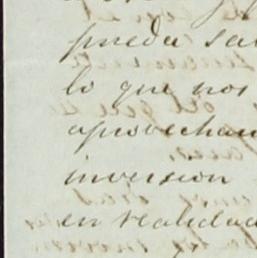 pueda sa
lo que nos
aprovechan
inversion
en realidad